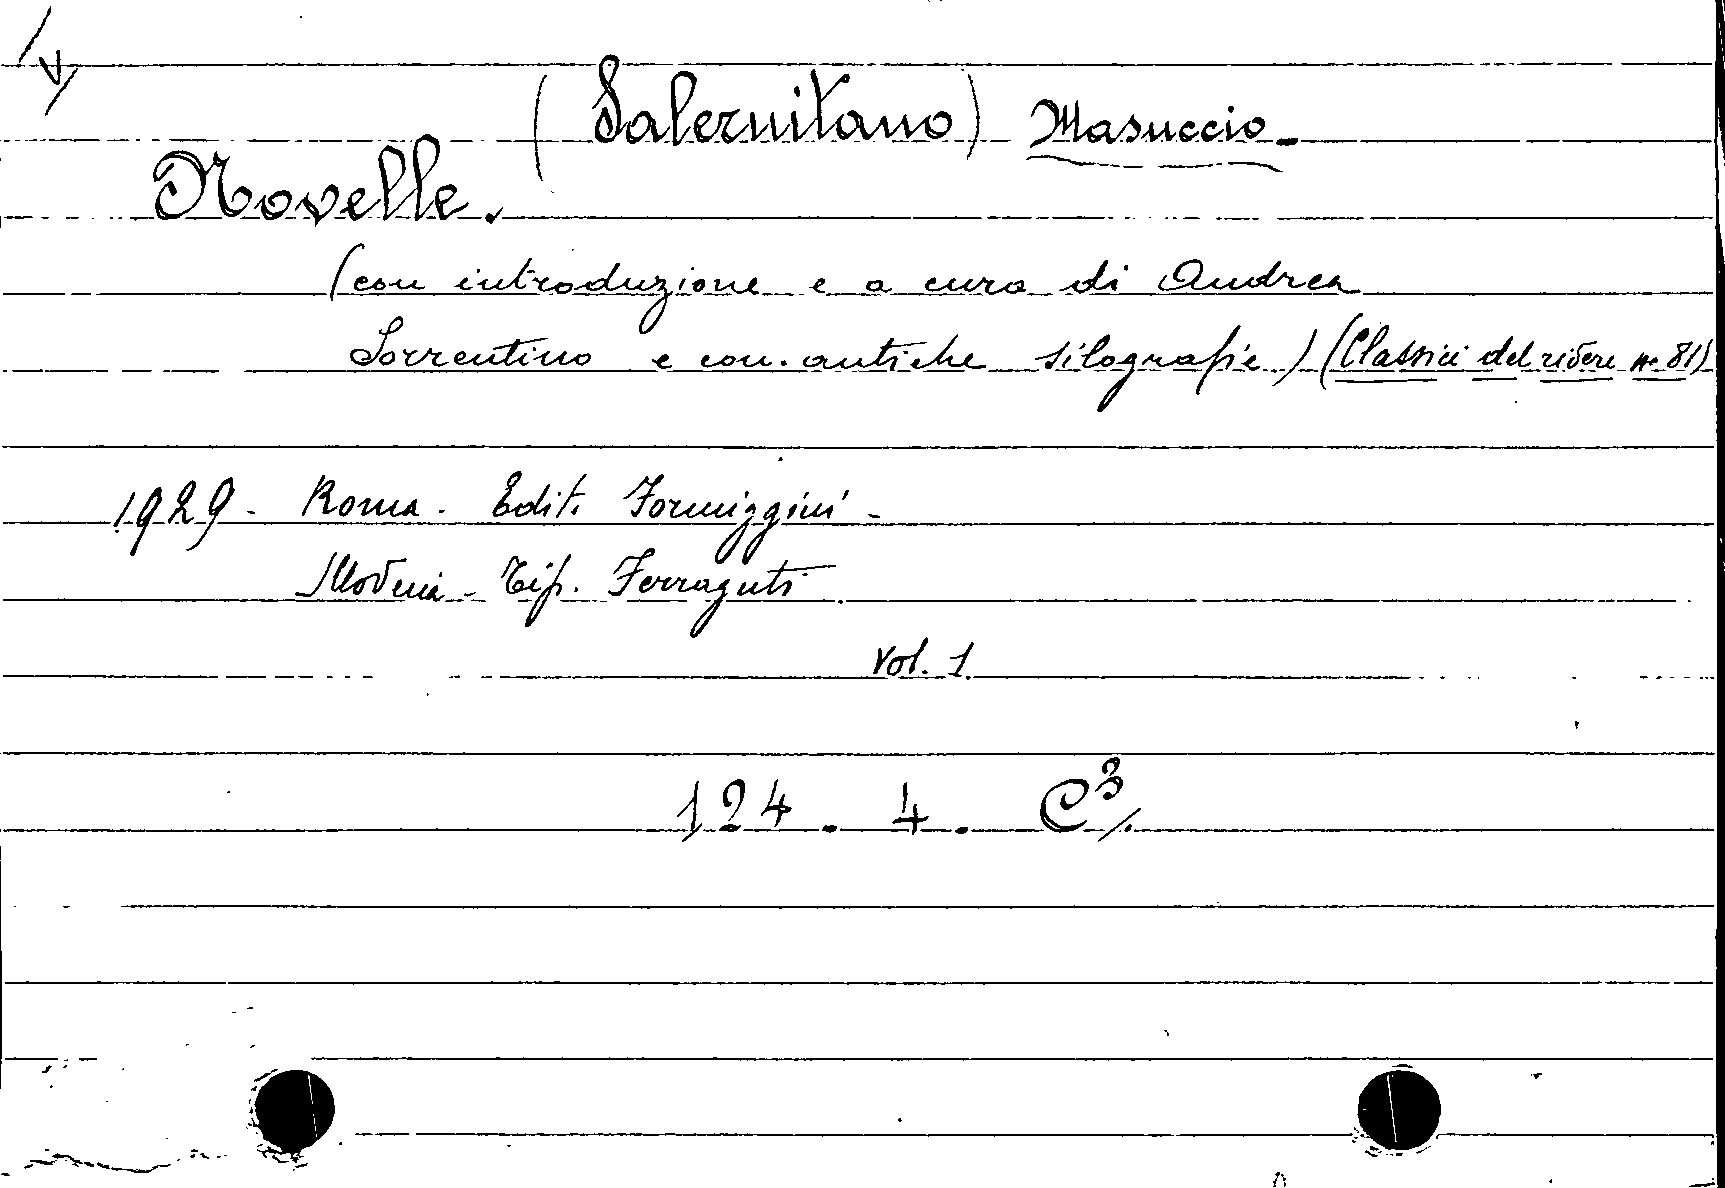 (Salernitano) Masuccio.
Novelle.
(con introduzione e a cura di Andrea
Sorrentino e con. antiche silografie) (Classici del ridere no 81)
1929 - Roma - Edit. Formiggini -
Modena - Tip. Ferraguti
Vol. 1
124. 4. C³/.